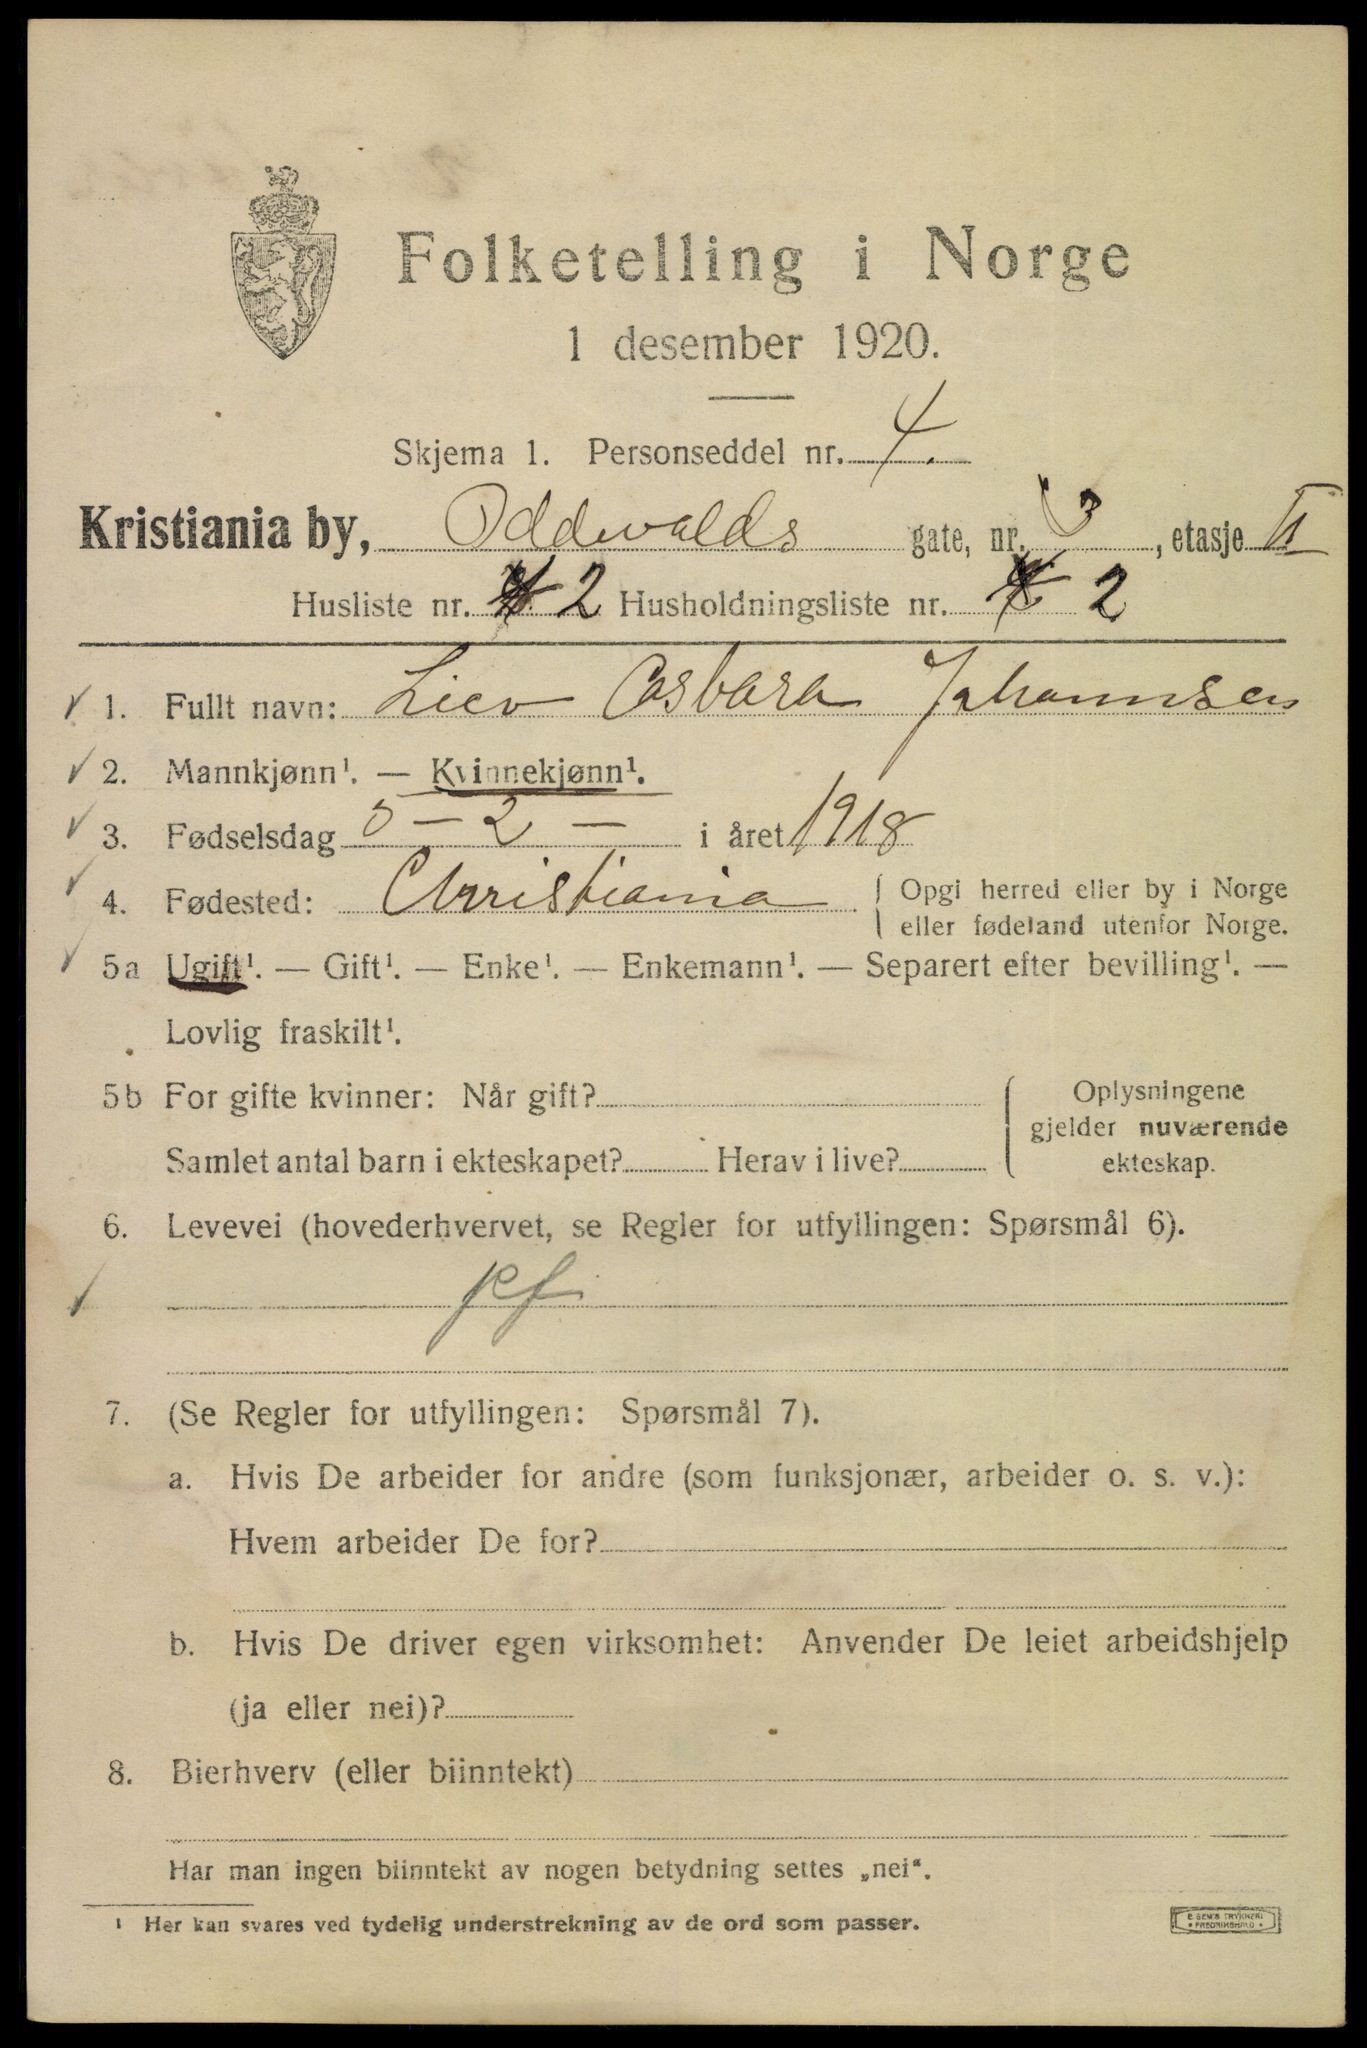 Folketelling i Norge
1 desember 1920.
Skjema 1. Personseddel nr. 4.
Kristiania by, Oddwalds gate, nr. 3, etasje II
Husliste nr. 2 Husholdningsliste nr. 2
1. Fullt navn: Johannsen
2. Mannkjønn¹. — Kvinnekjønn¹.
3. Fødselsdag 5 - 2 - i året 1918
4. Fødested: Christiania { Opgi herred eller by i Norge
eller fødeland utenfor Norge.
5a Ugift¹. — Gift¹. — Enke¹. — Enkemann¹. — Separert efter bevilling¹. —
Lovlig fraskilt¹.
5b For gifte kvinner: Når gift? { Oplysningene
gjelder nuværende
Samlet antal barn i ekteskapet? Herav i live? ekteskap.
6. Levevei (hovederhvervet, se Regler for utfyllingen: Spørsmål 6).
7. (Se Regler for utfyllingen: Spørsmål 7).
a. Hvis De arbeider for andre (som funksjonær, arbeider o. s. v.):
Hvem arbeider De for?
b. Hvis De driver egen virksomhet: Anvender De leiet arbeidshjelp
(ja eller nei)?
8. Bierhverv (eller biinntekt)
Har man ingen biinntekt av nogen betydning settes „nei“.
¹ Her kan svares ved tydelig understrekning av de ord som passer.
E SEM'S TRYKKERI
• FREDRIKSHALD •